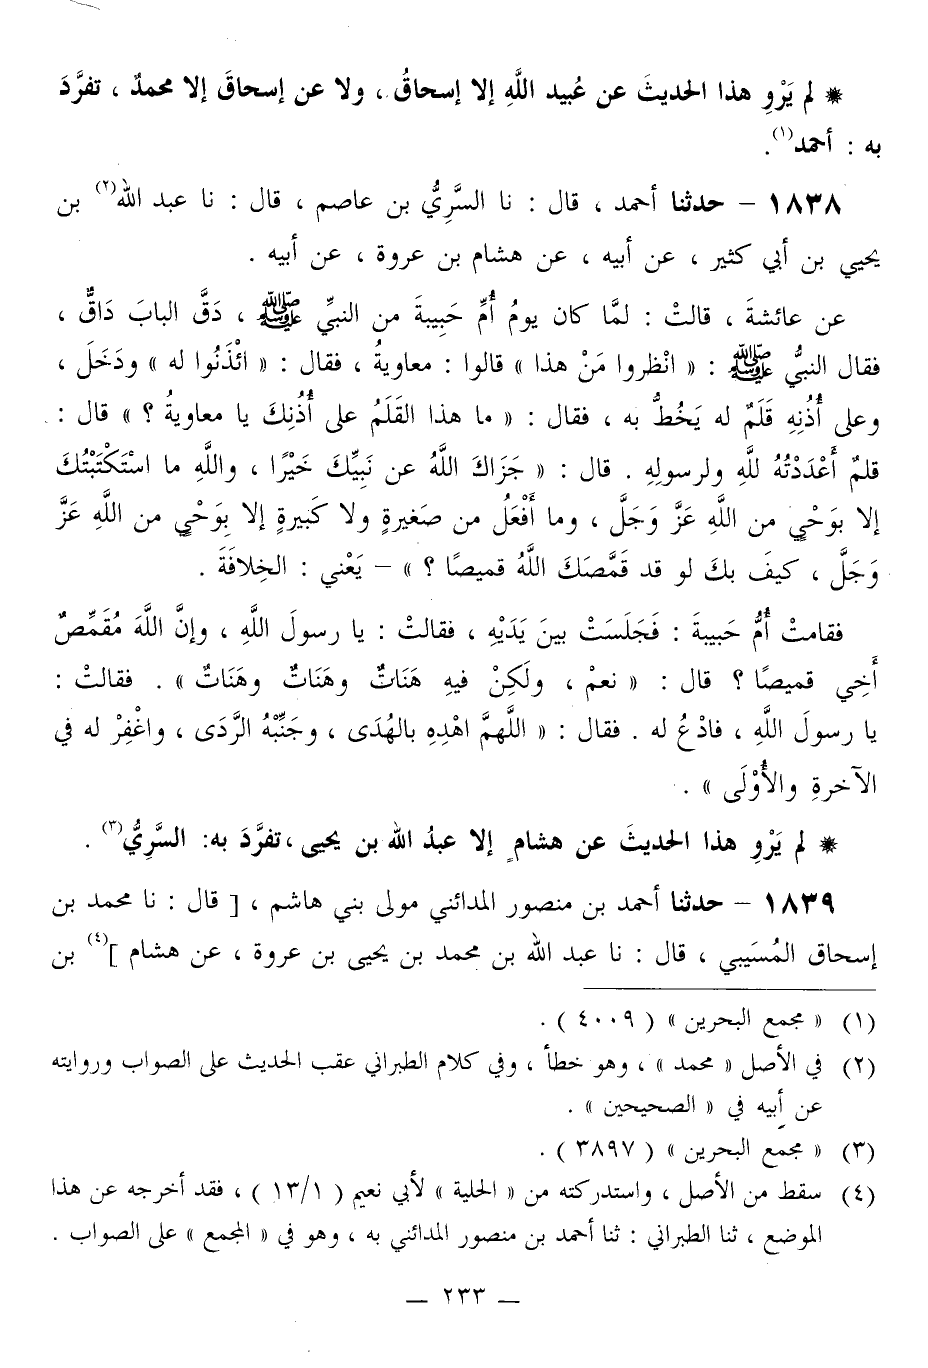 * لم يَرْوِ هذا الحديثَ عن عُبيد اللَّهِ إلا إسحاقُ ، ولا عن إسحاقَ إلا محمدٌ ، تفرَّدَ
به : أحمد(١).
١٨٣٨ – حدثنا أحمد ، قال : نا السَّرِيُّ بن عاصم ، قال : نا عبد الله(٢) بن
يحيي بن أبي كثير ، عن أبيه ، عن هشام بن عروة ، عن أبيه .
عن عائشةَ ، قالتْ : لمَّا كان يومُ أُمِّ حَبِيبةَ من النبيِّ ﷺ ، دَقَّ البابَ دَاقٌّ ،
فقال النبيُّ ﷺ : « انْظروا مَنْ هذا » قالوا : معاويةُ ، فقال : « ائْذَنُوا له » ودَخَلَ ،
وعلى أُذُنِهِ قَلَمٌ له يَخُطُّ به ، فقال : « ما هذا القَلَمُ على أُذُنِكَ يا معاويةُ ؟ » قال :
قلمٌ أَعْدَدْتُهُ للَّهِ ولرسولِهِ . قال : « جَزَاكَ اللَّهُ عن نَبِيِّكَ خَيْرًا ، واللَّهِ ما اسْتَكْتَبْتُكَ
إلا بوَحْيٍ من اللَّهِ عَزَّ وَجَلَّ ، وما أَفْعَلُ من صَغيرةٍ ولا كَبيرةٍ إلا بِوَحْيٍ من اللَّهِ عَزَّ
وَجَلَّ ، كيفَ بكَ لو قد قَمَّصَكَ اللَّهُ قميصًا ؟ » – يَعْني : الخِلافَةَ .
فقامتْ أُمُّ حَبيبةَ : فَجَلَسَتْ بينَ يَدَيْهِ ، فقالتْ : يا رسولَ اللَّهِ ، وإنَّ اللَّهَ مُقَمِّصٌ
أَخِي قميصًا ؟ قال : « نعمْ ، ولَكِنْ فيهِ هَنَاتٌ وهَنَاتٌ وهَنَاتٌ » . فقالتْ :
يا رسولَ اللَّهِ ، فادْعُ له . فقال : « اللَّهمَّ اهْدِهِ بالهُدَى ، وجَنِّبْهُ الرَّدَى ، واغْفِرْ له في
الآخرةِ والأُوْلَى » .
* لم يَرْوِ هذا الحديثَ عن هشامٍ إلا عبدُ الله بن يحيى ، تفرَّدَ به: السَّرِيُّ(٣) .
١٨٣٩ – حدثنا أحمد بن منصور المدائني مولى بني هاشم ، [ قال : نا محمد بن
إسحاق المُسَيبي ، قال : نا عبد الله بن محمد بن يحيى بن عروة ، عن هشام ](٤) بن
(١) « مجمع البحرين » ( ٤٠٠٩ ) .
(٢) في الأصل « محمد » ، وهو خطأ ، وفي كلام الطبراني عقب الحديث على الصواب وروايته
عن أبيه في « الصحيحين » .
(٣) « مجمع البحرين » ( ٣٨٩٧ ) .
(٤) سقط من الأصل ، واستدركته من « الحلية » لأبي نعيم ( ١٣/١ ) ، فقد أخرجه عن هذا
الموضع ، ثنا الطبراني : ثنا أحمد بن منصور المدائني به ، وهو في « المجمع » على الصواب .
— ٢٣٣ —